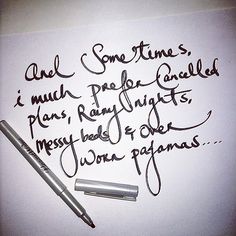 And Sometimes,
i much prefer Cancelled
plans, Rainy nights,
Messy beds & over
worn pajamas....